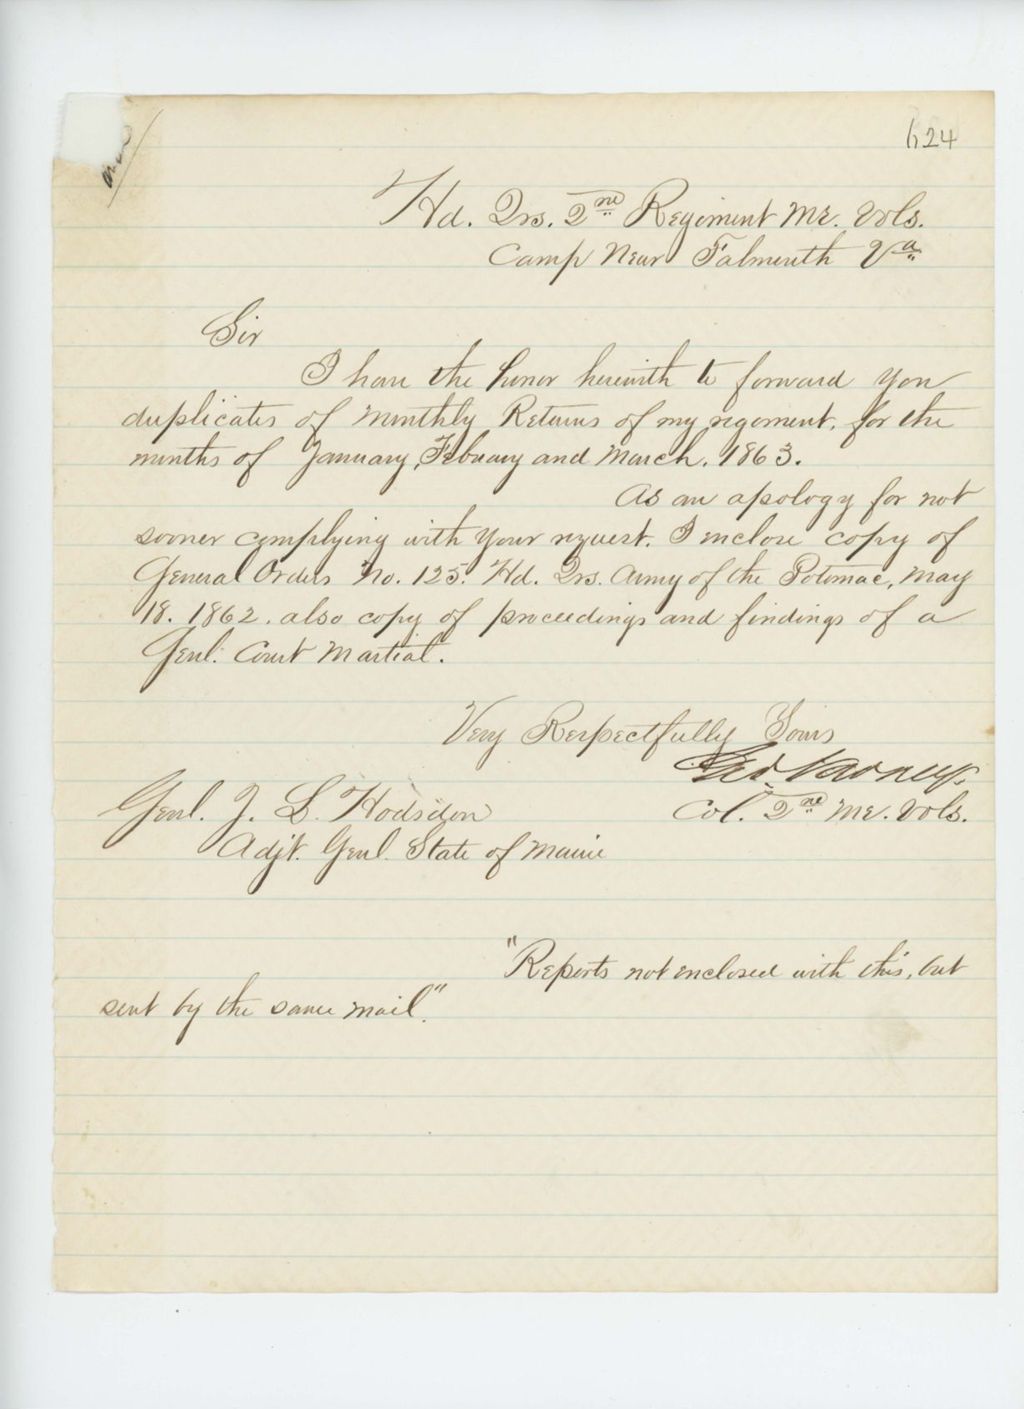 624
Hd. Qrs. 2nd Regiment Me. Vols.
Camp Near Falmouth Va
Sir
I have the honor herewith to forward you
duplicates of Monthly Returns of my regiment, for the
months of January, Febuary and March. 1863.
As an apology for not
sooner complying with your request. I enclose copy of
General Orders No. 125. Hd. Qrs. Army of the Potomac, May
18. 1862. also copy of proceedings and findings of a
Genl. Court Martial.
Very Respectfully Yours
Geo. Varney
Genl. J. L. Hodsdon
Col. 2nd Me. Vols.
Adjt. Genl. State of Maine
"Reports not enclosed with this, but
sent by the same mail."